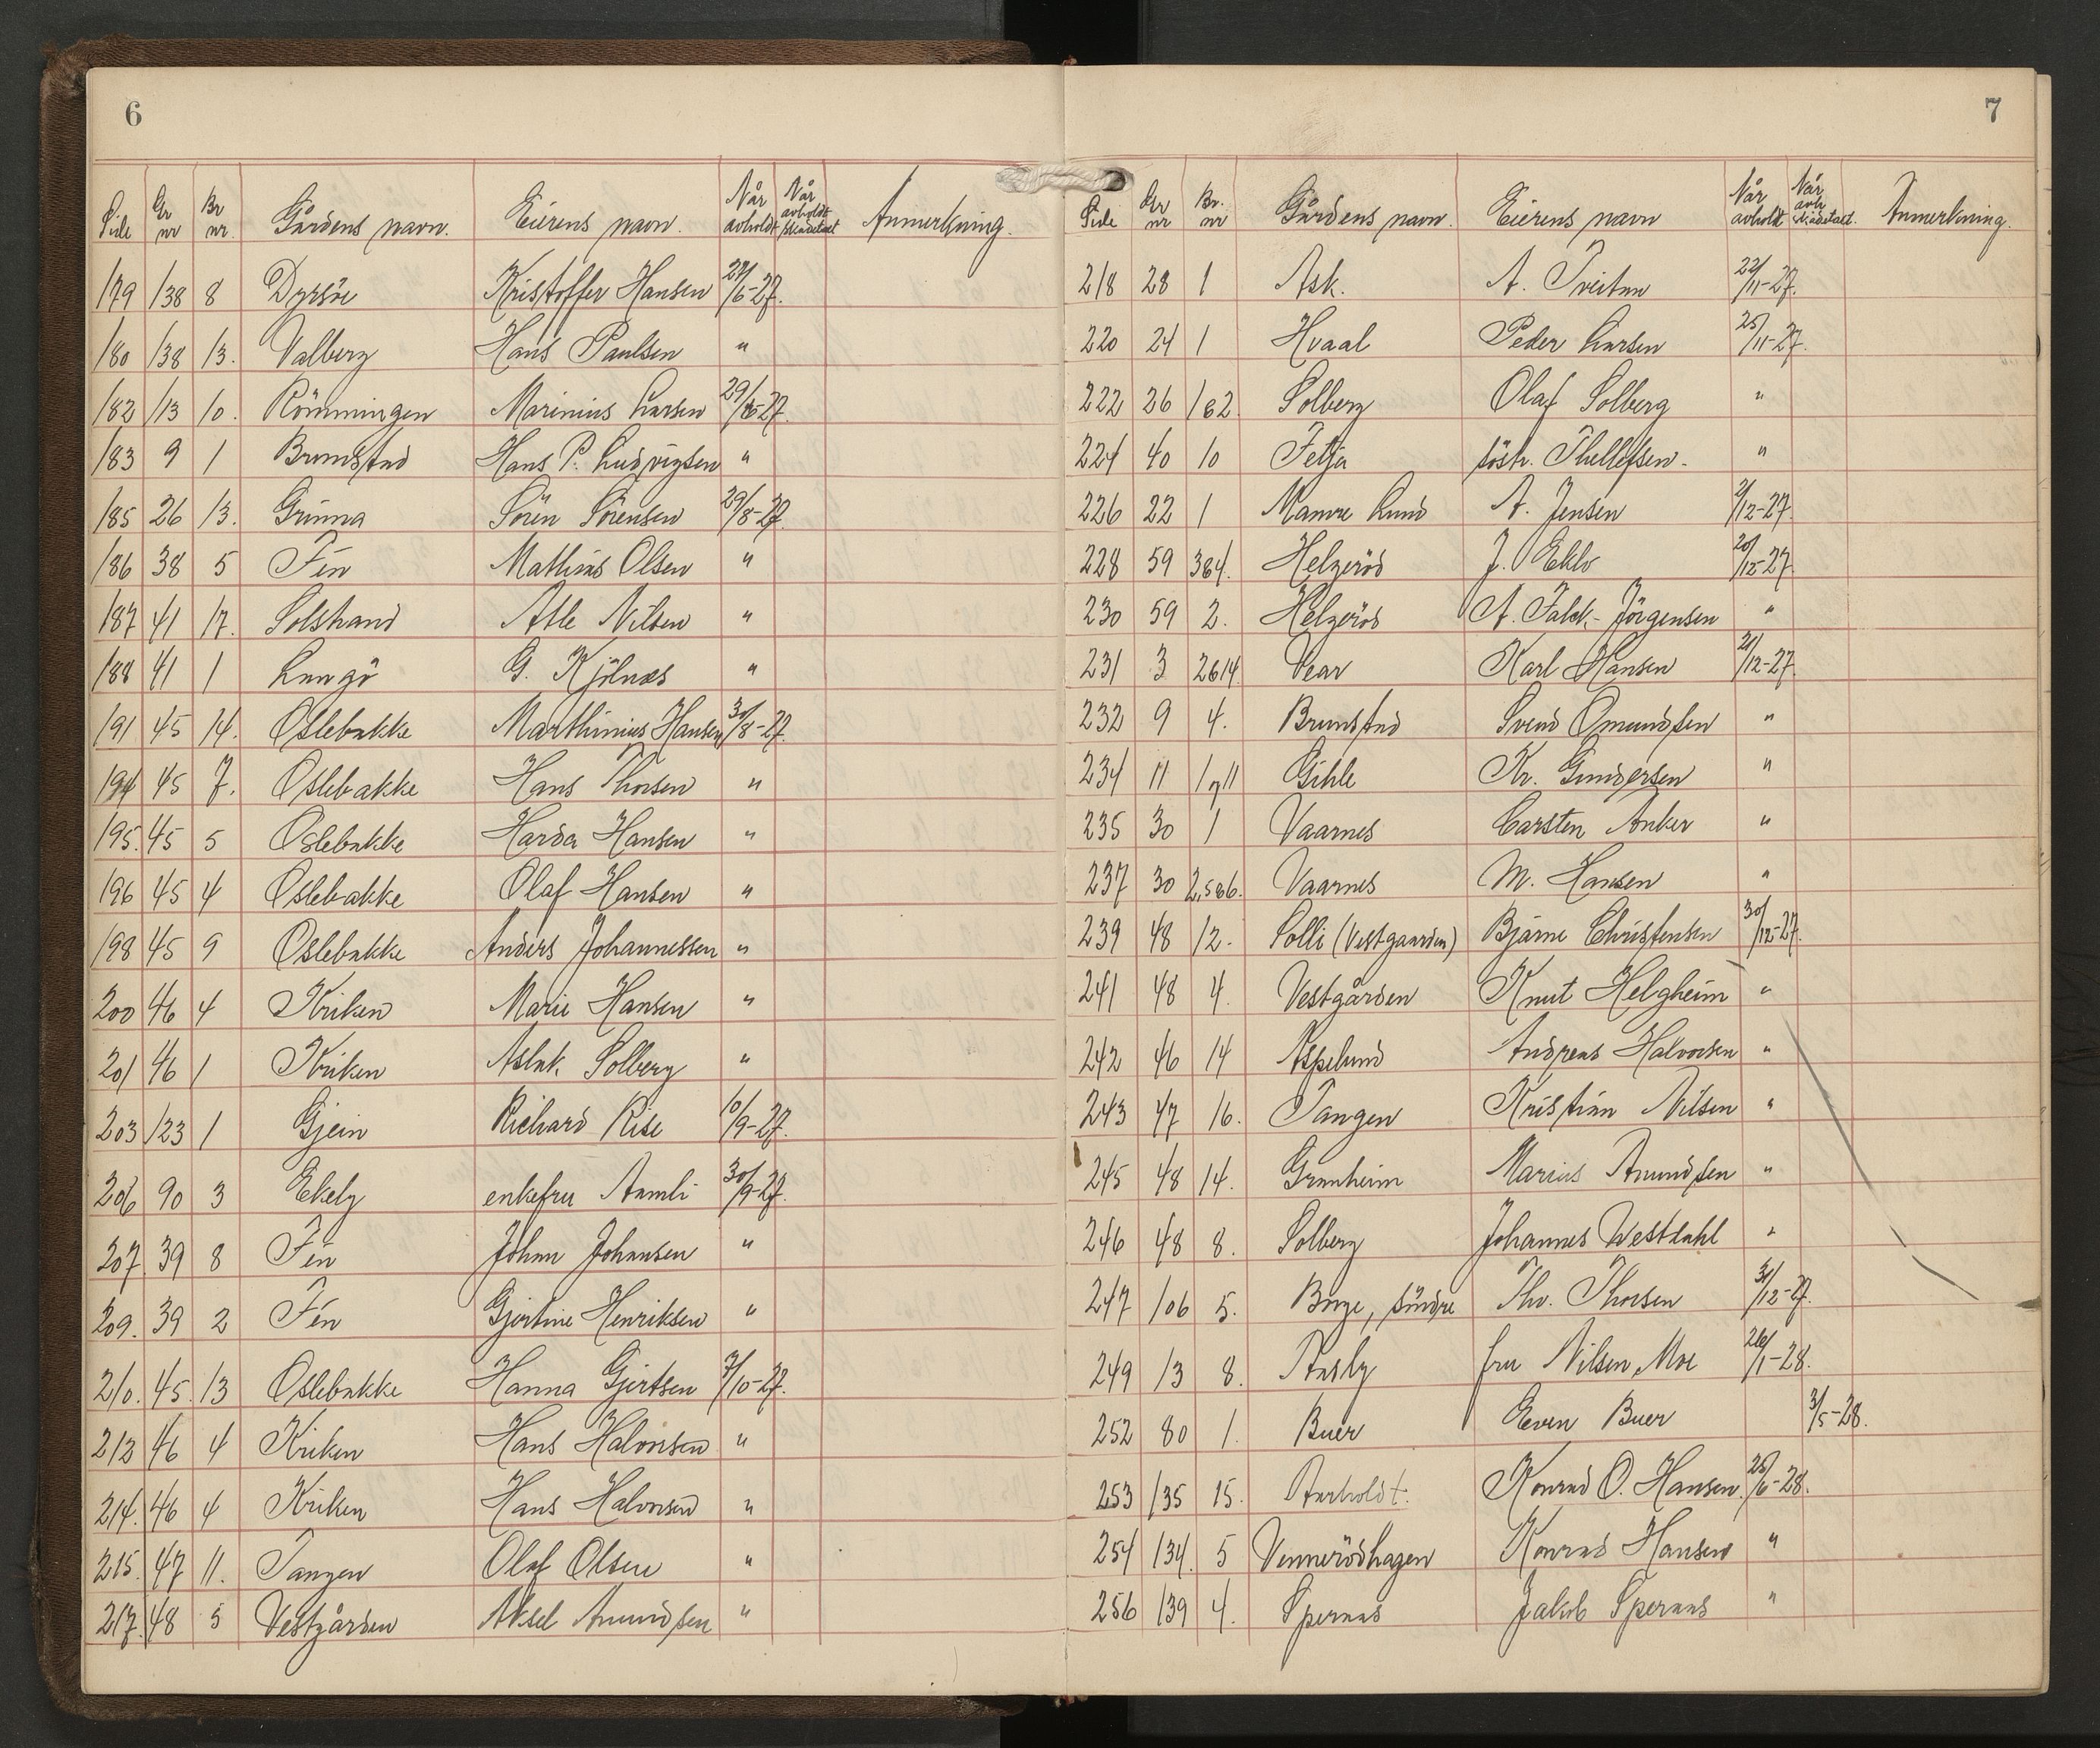 6
Side Gr nr Br nr. Gårdens navn. Eierens navn. Når avholdt Når avholdt skadetakst Anmerkning.
179 138 8 Dyrsöe Kristoffer Hansen 27/6-27.
180 138 13. Valberg Hans Paulsen "
182 113 10. Römmingen Marinius Larsen 29/6-27.
183 9 1 Brunstad Hans P. Ludvigsen "
185 26 13. Grinna Sören Sörensen 29/8-27.
186 38 5 Fén Mathias Olsen "
187 41 17. Solstrand Atle Nilsen "
188 41 1 Langö G. Kjölnæs "
191 45 14. Oslebakke Marthinius Hansen 30/8-27.
194 45 7. Oslebakke Hans Thorsen "
195. 45 5 Oslebakke Harda Hansen "
196 45 4 Oslebakke Olaf Hansen "
198 45 9 Oslebakke Anders Johannessen "
200 46 4 Kriken Marie Hansen "
201 46 1 Kriken Aslak Solberg "
203 123 1 Gjein Richard Rise 10/9-27.
206 90 3 Ekely enkefru Aamli 30/9-27.
207. 39 8 Fén Johan Johansen "
209. 39 2 Fén Gjertine Henriksen "
210. 45. 13 Oslebakke Hanna Gjertsen 3/10-27.
212 46 4 Kriken Hans Halvorsen "
214. 46 4 Kriken Hans Halvorsen "
215. 47 11. Tangen Olaf Olsen "
217. 48 5 Vestgården Aksel Amundsen "
7
Side Gr nr Br. nr Gårdens navn. Eierens navn Når avholdt Når avh. skadetakst. Anmerkning.
218 28 1 Ask. A. Tveitan 22/11-27.
220 24 1 Hvaal Peder Larsen 25/11-27.
222 26 1&2 Solberg Olaf Solberg "
224 40 10 Fetja söstr. Thellefsen. "
226 22 1 Manvre Lund A. Jensen 2/12-27.
228 59 3&4. Helgeröd J. Eklo 20/12-27.
230 59 2. Helgeröd A. Falck-Jörgensen "
231 3 2&14 Vear Karl Hansen 21/12-27.
232 9 4. Brunstad Svend Omundsen "
234 11 1 og 11 Gihle Kr. Gundersen "
235 30 1 Vaarnes Carsten Anker "
237 30 2,5&6. Vaarnes M. Hansen "
239 48 12. Solli (Vestgaarden) Bjarne Christensen 30/12-27.
241 48 4. Vestgården Knut Helgheim "
242 46 14 Aspelund Andreas Halvorsen "
243 47 16. Tangen Kristian Nilsen "
245 48 14. Granheim Marius Amundsen "
246 48 8. Solberg Johannes Westdahl "
247 106 5. Borge, söndre Thv. Thorsen 31/12-27.
249 13 8. Rasly fru Nilsen Moe 26/1-28.
252 80 1. Buer Even Buer 3/5-28.
253 135 15. Aarholdt. Konrad O. Hansen. 25/6-28.
254 134. 5 Venneródhagen Konrad Hansen "
256 139 4. Spernes Jakob Spernes "